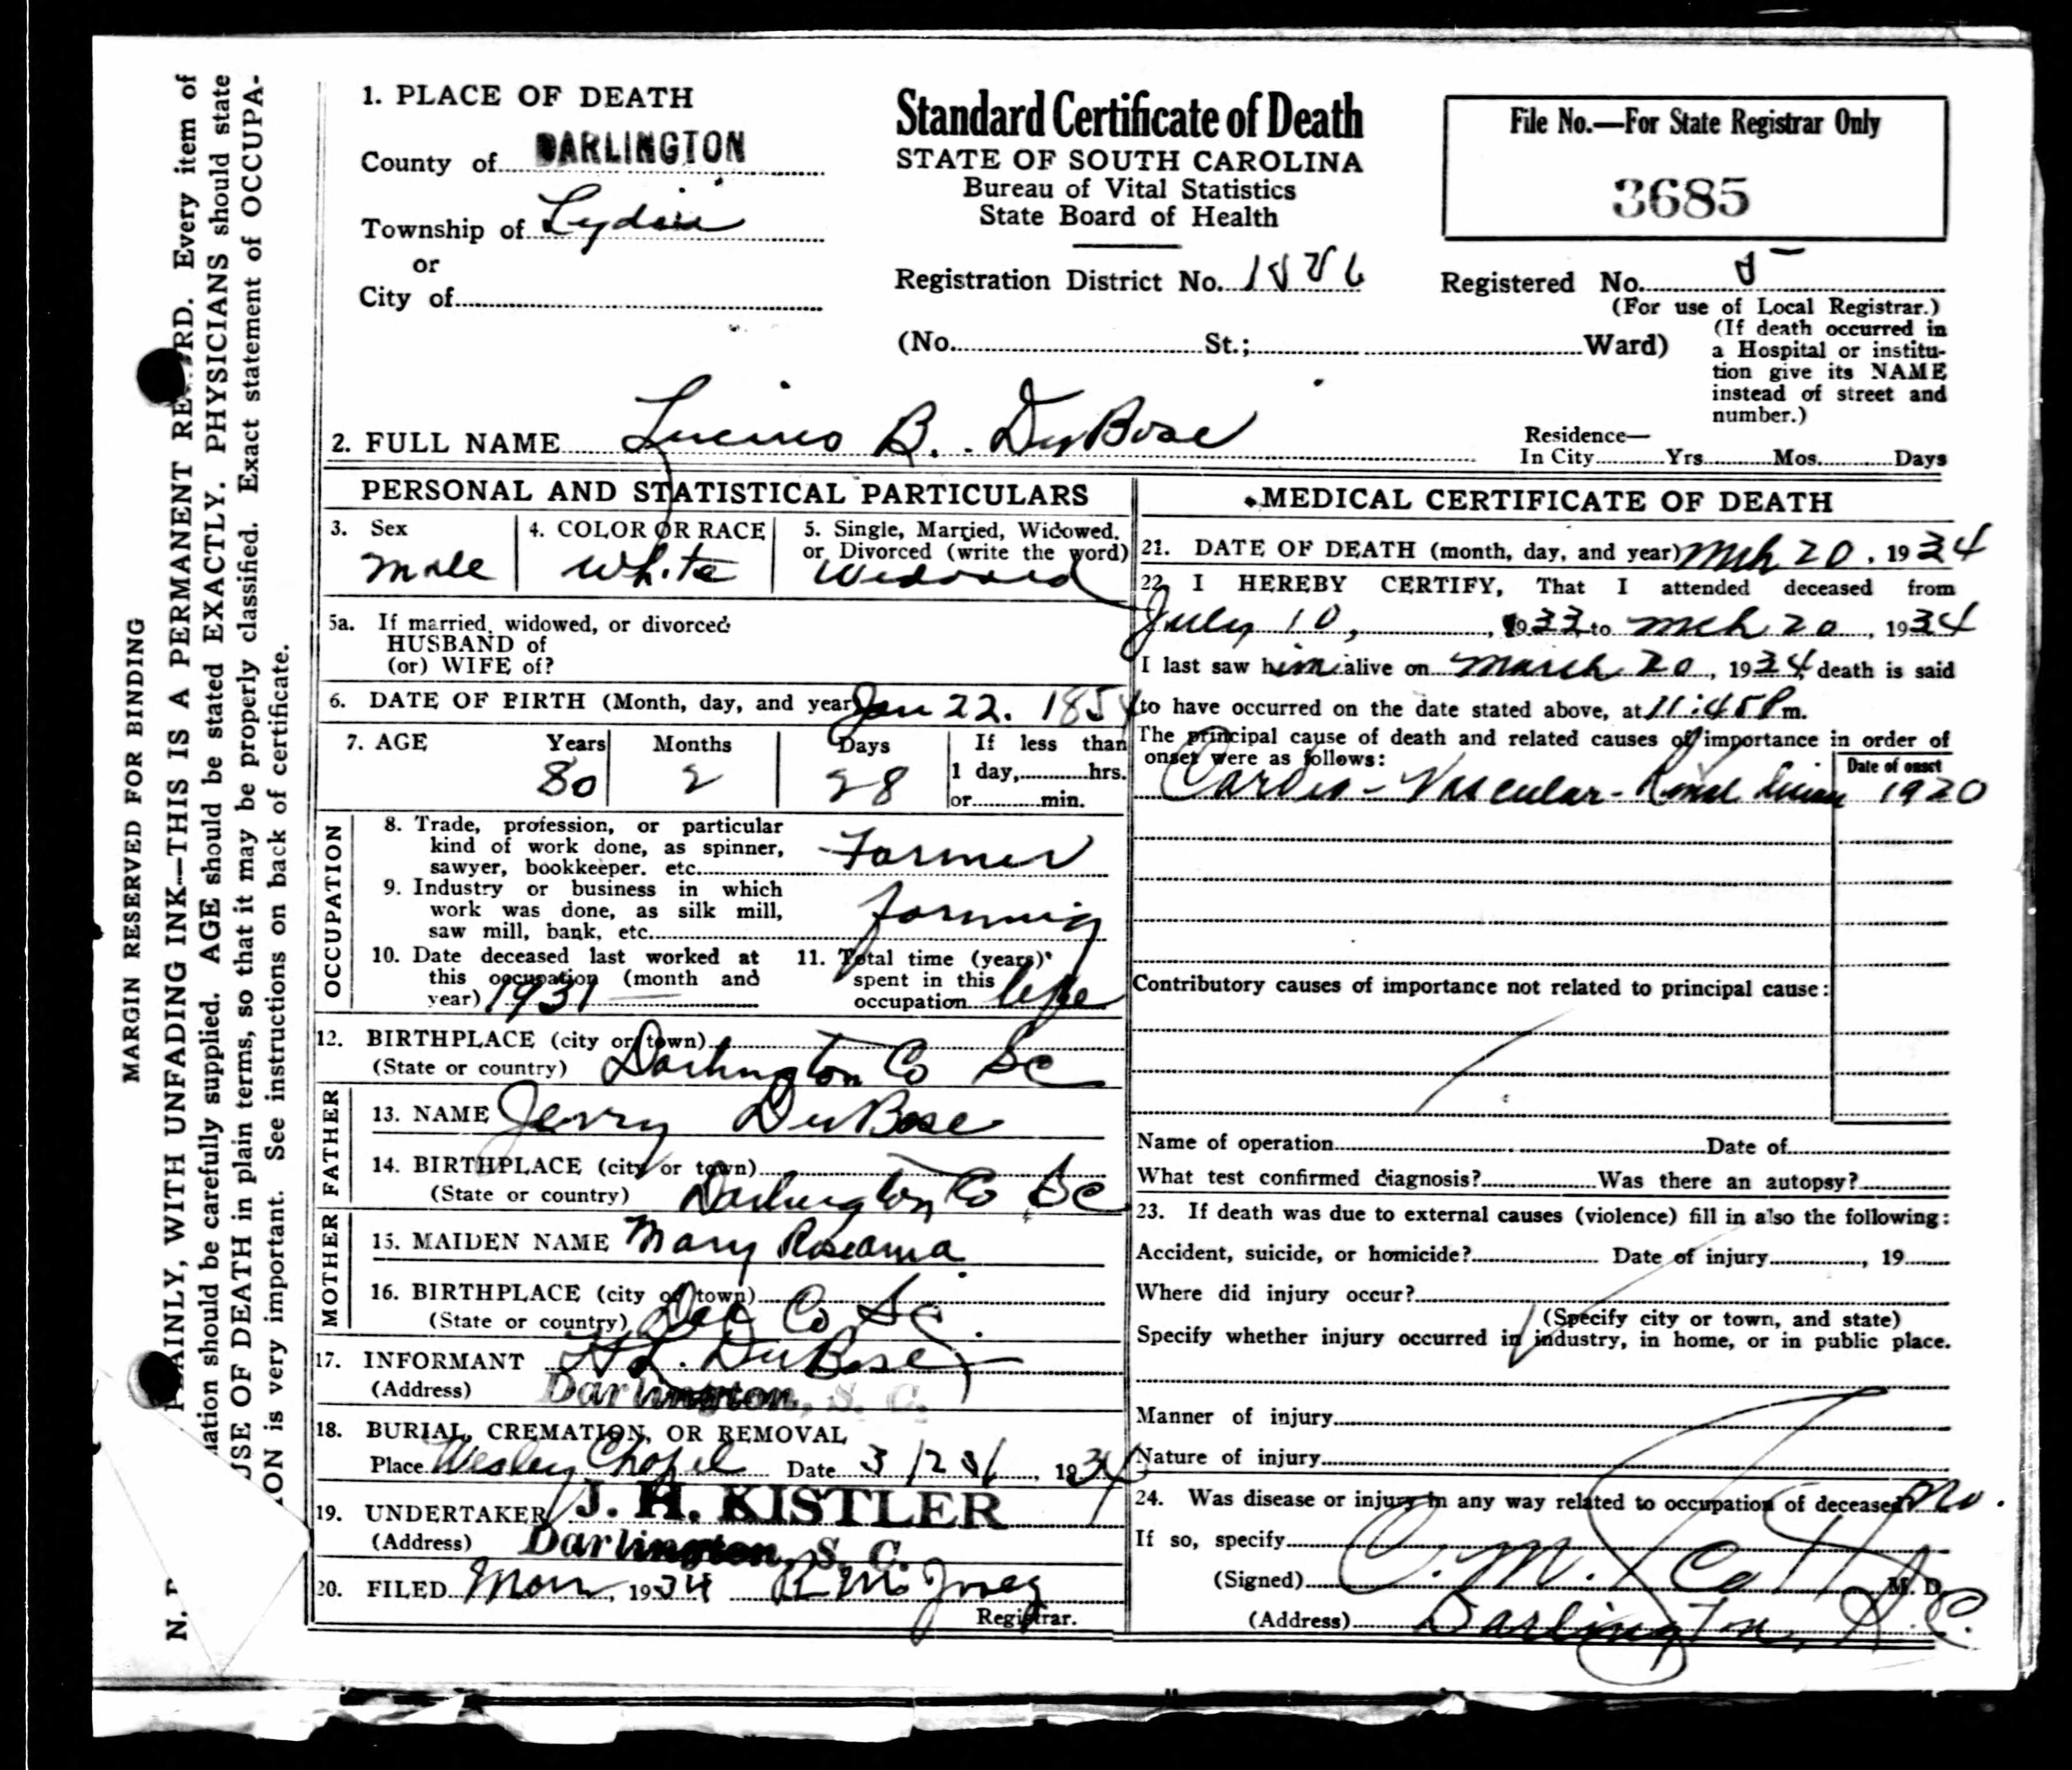 MARGIN RESERVED FOR BINDING
AINLY, WITH UNFADING INK—THIS IS A PERMANENT RECORD. Every item of
ation should be carefully supplied. AGE should be stated EXACTLY. PHYSICIANS should state
USE OF DEATH in plain terms, so that it may be properly classified. Exact statement of OCCUPA-
ION is very important. See instructions on back of certificate.
1. PLACE OF DEATH
County of DARLINGTON
Township of Lydia
or
City of
Standard Certificate of Death
STATE OF SOUTH CAROLINA
Bureau of Vital Statistics
State Board of Health
File No.—For State Registrar Only
3685
Registration District No.
Registered No. 5
(For use of Local Registrar.)
(No. St.; Ward)
(If death occurred in
a Hospital or institu-
tion give its NAME
instead of street and
number.)
2. FULL NAME Lucius B. DuBose
Residence—
In City Yrs. Mos. Days
PERSONAL AND STATISTICAL PARTICULARS
3. Sex
male
4. COLOR OR RACE
White
5. Single, Married, Widowed,
or Divorced (write the word)
Widowed
5a. If married, widowed, or divorced
HUSBAND of
(or) WIFE of?
6. DATE OF BIRTH (Month, day, and year) Jan 22. 1854
7. AGE Years Months Days If less than
80 2 28 1 day, hrs.
or min.
OCCUPATION
8. Trade, profession, or particular
kind of work done, as spinner,
sawyer, bookkeeper. etc. Farmer
9. Industry or business in which
work was done, as silk mill,
saw mill, bank, etc. farming
10. Date deceased last worked at
this occupation (month and
year) 1931
11. Total time (years)
spent in this
occupation life
12. BIRTHPLACE (city or town)
(State or country) Darlington Co SC
FATHER
13. NAME Jerry DuBose
14. BIRTHPLACE (city or town)
(State or country) Darlington Co SC
MOTHER
15. MAIDEN NAME Mary
16. BIRTHPLACE (city or town)
(State or country) Co SC.
17. INFORMANT H L. DuBose
(Address) Darlington, S. C.
18. BURIAL, CREMATION, OR REMOVAL
Place Wesley Chapel Date 3/2 1934
19. UNDERTAKER J. H. KISTLER
(Address) Darlington, S. C.
20. FILED 1934
Registrar.
MEDICAL CERTIFICATE OF DEATH
21. DATE OF DEATH (month, day, and year) Mch 20, 1934
22. I HEREBY CERTIFY, That I attended deceased from
July 10, 1933 to Mch 20, 1934
I last saw him alive on March 20, 1934 death is said
to have occurred on the date stated above, at 11:45 P m.
The principal cause of death and related causes of importance in order of
onset were as follows:
Date of onset
Cardio-Vascular-Renal disease 1920
Contributory causes of importance not related to principal cause:
Name of operation Date of
What test confirmed diagnosis? Was there an autopsy?
23. If death was due to external causes (violence) fill in also the following:
Accident, suicide, or homicide? Date of injury , 19
Where did injury occur?
(Specify city or town, and state)
Specify whether injury occurred in industry, in home, or in public place.
Manner of injury
Nature of injury
24. Was disease or injury in any way related to occupation of deceased? No.
If so, specify
(Signed) C. M. Scott M. D.
(Address) Darlington, S.C.